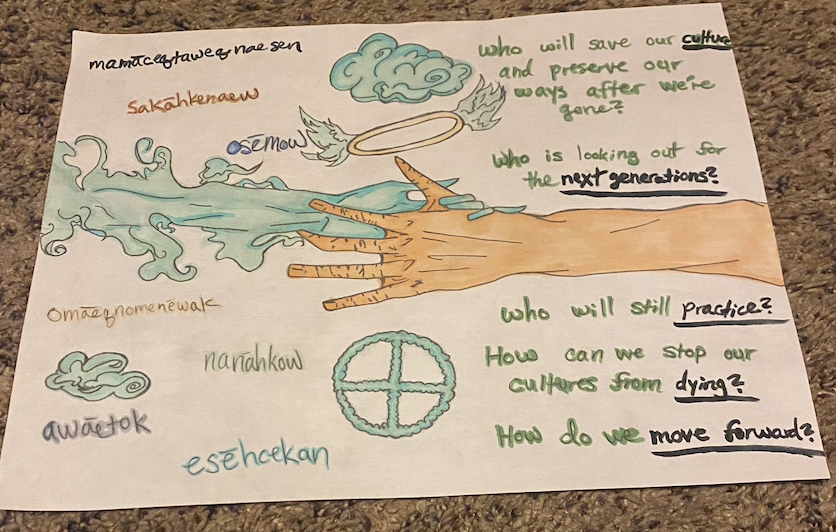 mamāceqtaweqnaesen
who will save our culture
and preserve our
ways after we're
gone?
Sakāhkenaew
osēmow
Who is looking out for
the next generations?
omāeqnomenēwak
who will still practice?
How can we stop our
cultures from dying?
How do we move forward?
nanāhkow
awāetok
esēhcekan